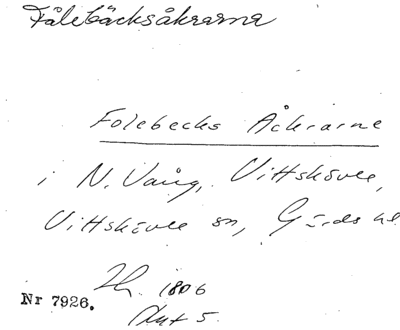 Fålebäcksåkrarna
Folebecks Åkrarne
i N. Vång, Vittskövle,
Vittskövle sn, Gärds hd
Lh. 1806
Nr 7926.
Akt 5.